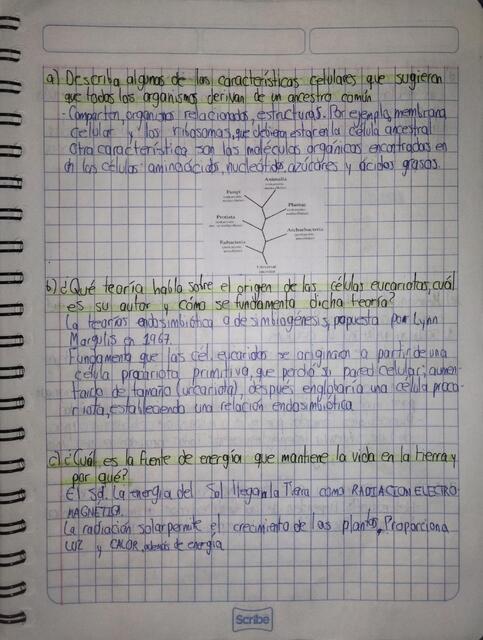 a) Describa algunas de las características celulares que sugieren
que todos los organismos derivan de un ancestro común
- Comparten, organicos relacionados, estructuras. Por ejemplo, membrana
celular y los ribosomas, que debieron estar en la célula ancestral
Otra característica son las moléculas orgánicas encontradas en
las células: aminoácidos, nucleótidos, azúcares y ácidos grasos.
Animalia
Fungi
Plantae
Protista
Archaebacteria
Eubacteria
Universal
b) ¿Qué teoría habla sobre el origen de las células eucariotas, cuál
es su autor y cómo se fundamenta dicha teoría?
La teorías endosimbiótica o de simbiogénesis, propuesta por Lynn
Margulis en 1967.
Fundamenta que las cel. eucariotas se originaron a partir de una
célula procariota primitiva, que perdió su pared celular; aumen-
tando de tamaño (urcariota), después englobaría una célula proca-
riota, estableciendo una relación endosimbiótica
c) ¿Cuál es la fuente de energía que mantiene la vida en la tierra y
por qué?
El Sol. La energía del Sol llega a la Tierra como RADIACION ELECTRO
MAGNÉTICA.
La radiación solar permite el crecimiento de las plantas, Proporciona
LUZ y CALOR, además de energía
Scribe